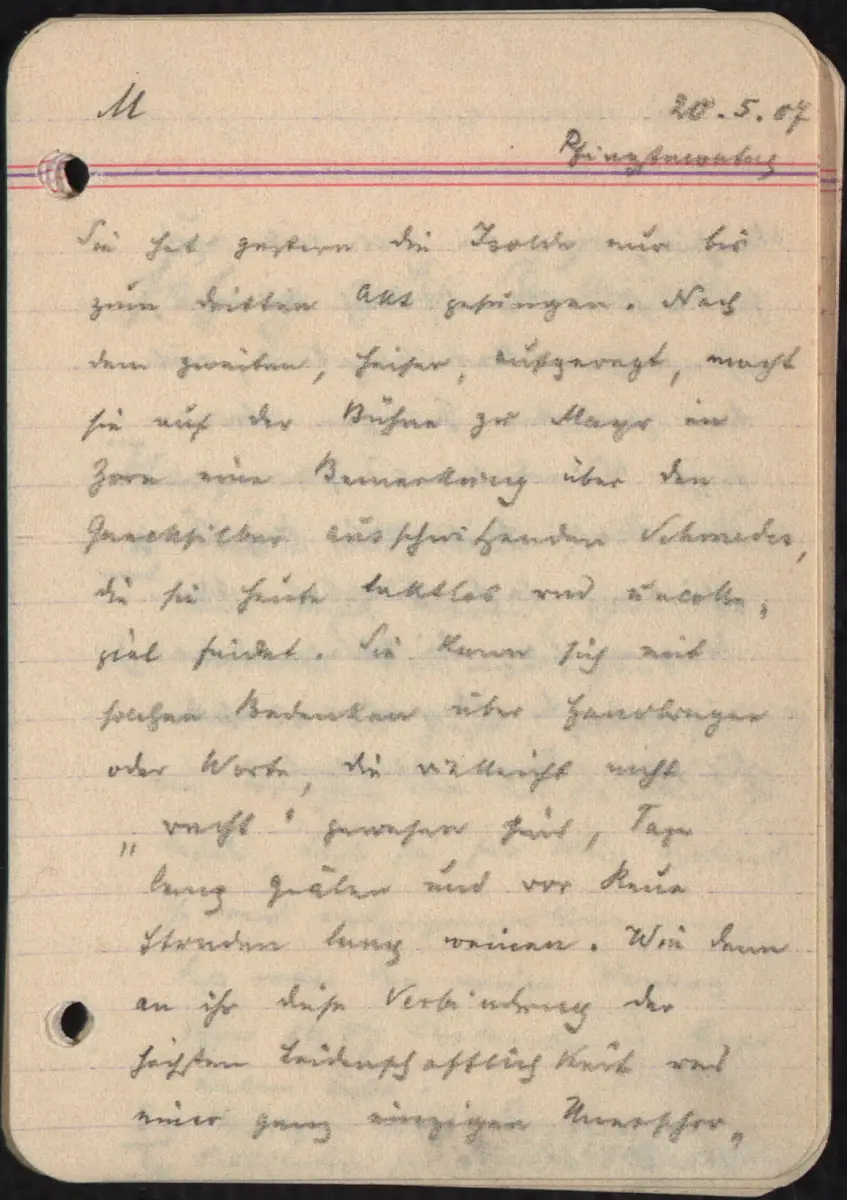 M
20.5.07
Pfingstmontag
Sie hat gestern die Isolde nur bis
zum dritten Akt gesungen. Nach
dem zweiten, heiser, aufgeregt, macht
sie auf der Bühne zu Mayr im
Zorn eine Bemerkung über den
Quecksilber ausschwitzenden Schmedes,
die sie heute taktlos und uncolle-
gial findet. Sie kann sich mit
solchen Bedenken über Handlungen
oder Worte, die vielleicht nicht
„recht“ gewesen sind, Tage
lang quälen und vor Reue
Stunden lang weinen. Wie denn
an ihr diese Verbindung der
höchsten Leidenschaftlichkeit und
einer ganz einzigen Unerschro-